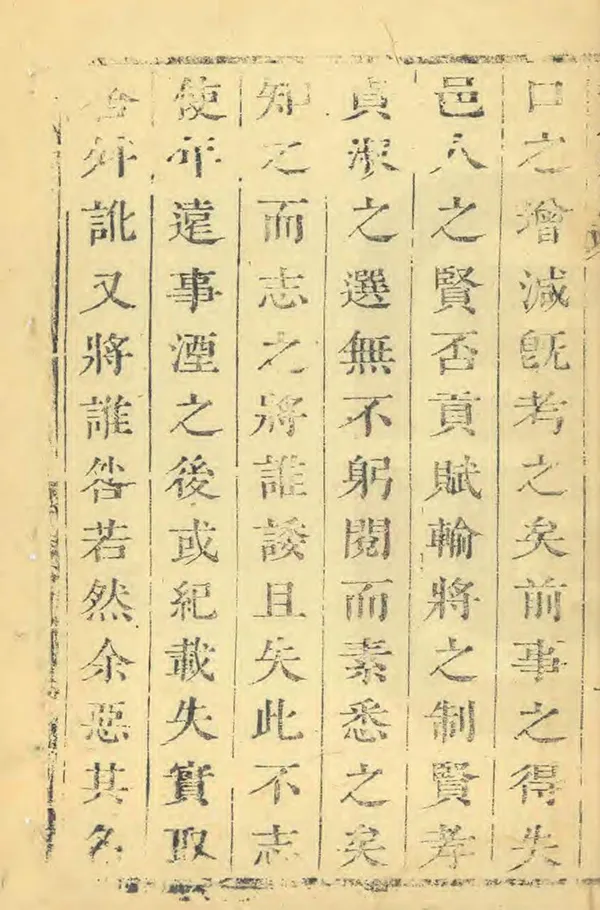 口之增減既考之矣前事之得失
邑人之賢否貢賦輸將之制賢孝
貞淑之選無不躬閱而素悉之矣
知之而志之將誰諉且失此不志
使年遠事湮之後或紀載失實取
舍舛訛又將誰咎若然余惡其名